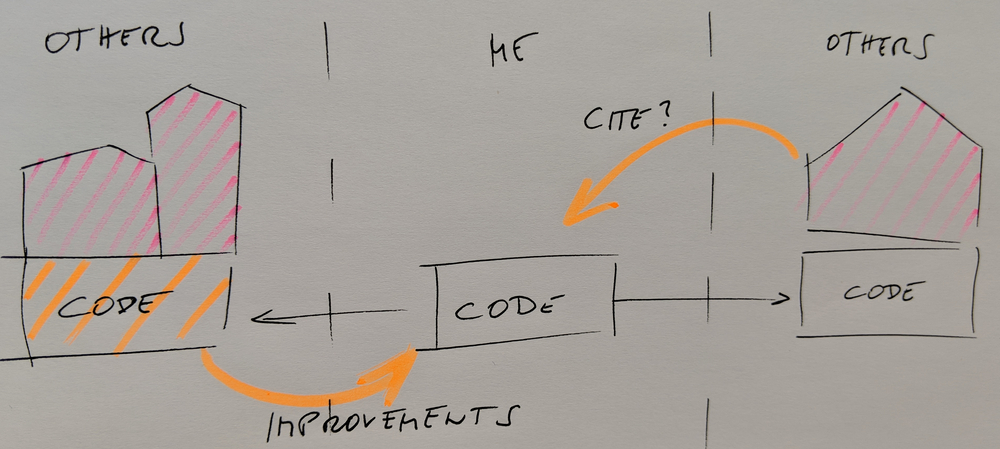 OTHERS
ME
OTHERS
CITE?
CODE
CODE
CODE
IMPROVEMENTS